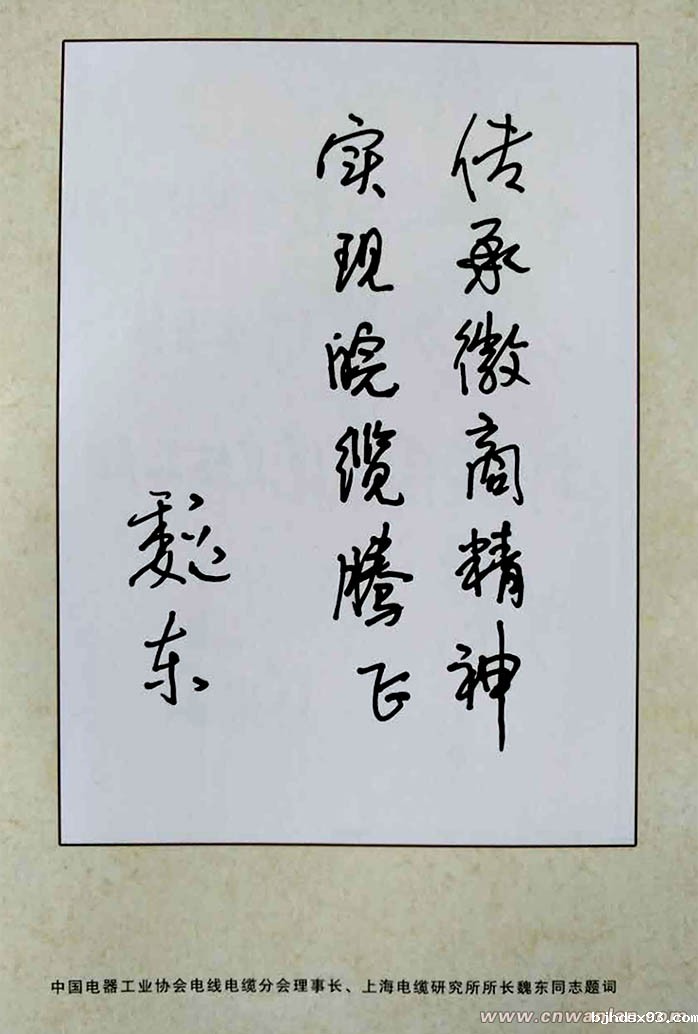 传承徽商精神
实现皖缆腾飞
魏东
中国电器工业协会电线电缆分会理事长、上海电缆研究所所长魏东同志题词
bjhdsx93.com